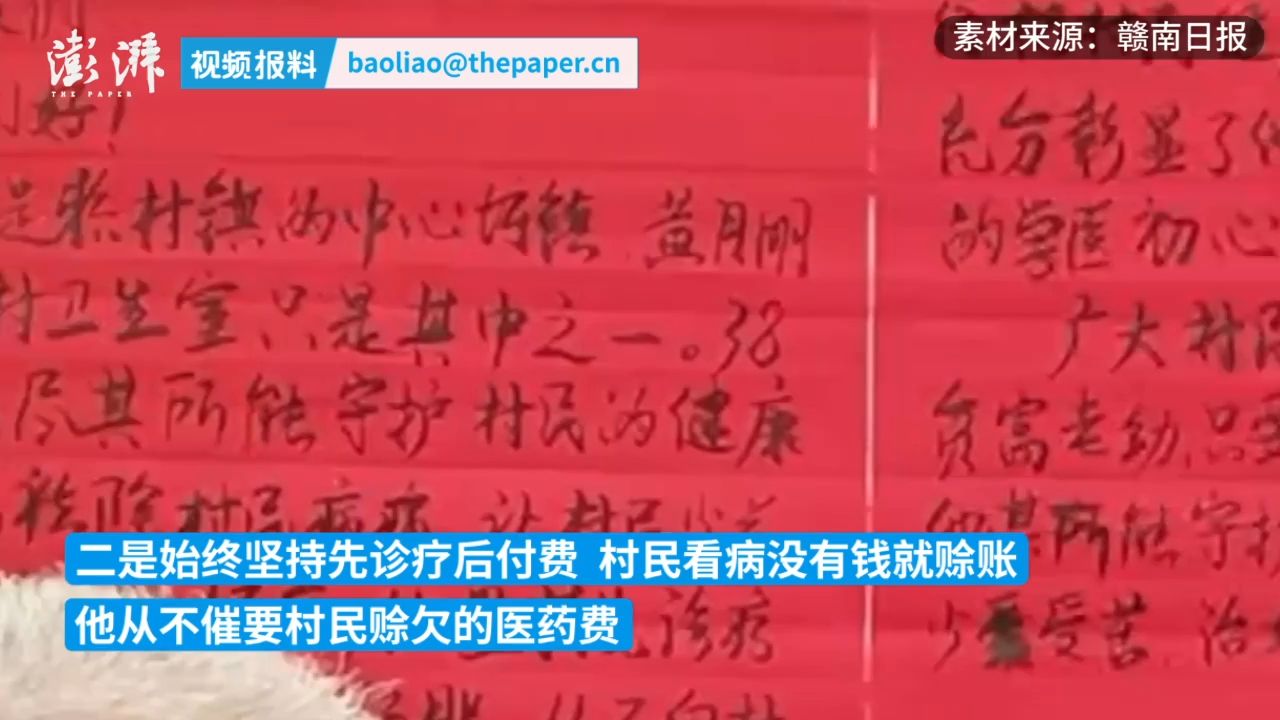 澎湃
THE PAPER
视频报料
baoliao@thepaper.cn
素材来源：赣南日报
好！
村镇的中心圩镇 黄月明
村卫生室只是其中之一。38
尽其所能守护村民的健康
除村民病痛，让村民少花
诊疗
从不向村
充分彰显了
的兽医初心
广大村民
贫富老幼，只要
其所能守护
少受苦、治
二是始终坚持先诊疗后付费 村民看病没有钱就赊账
他从不催要村民赊欠的医药费